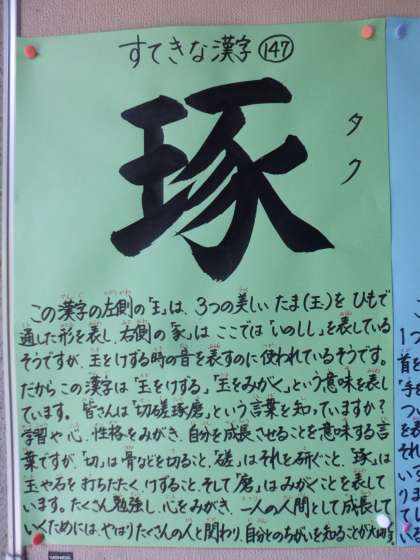 すてきな漢字 147
琢
タク
この漢字の左側の「王」は、3つの美しいたま(玉)をひもで
通した形を表し、右側の「豖」は、ここでは「いのしし」を表している
そうですが、玉をけずる時の音を表すのに使われているそうです。
だからこの漢字は「玉をけずる」「玉をみがく」という意味を表し
ています。皆さんは「切磋琢磨」という言葉を知っていますか?
学習や心、性格をみがき、自分を成長させることを意味する言
葉ですが、「切」は骨などを切ること、「磋」はそれを研ぐこと、「琢」は
玉や石を打ちたたく、けずること、そして「磨」はみがくことを表して
います。たくさん勉強し、心をみがき、一人の人間として成長して
いくためには、やはりたくさんの人と関わり、自分とのちがいを知ることが大切